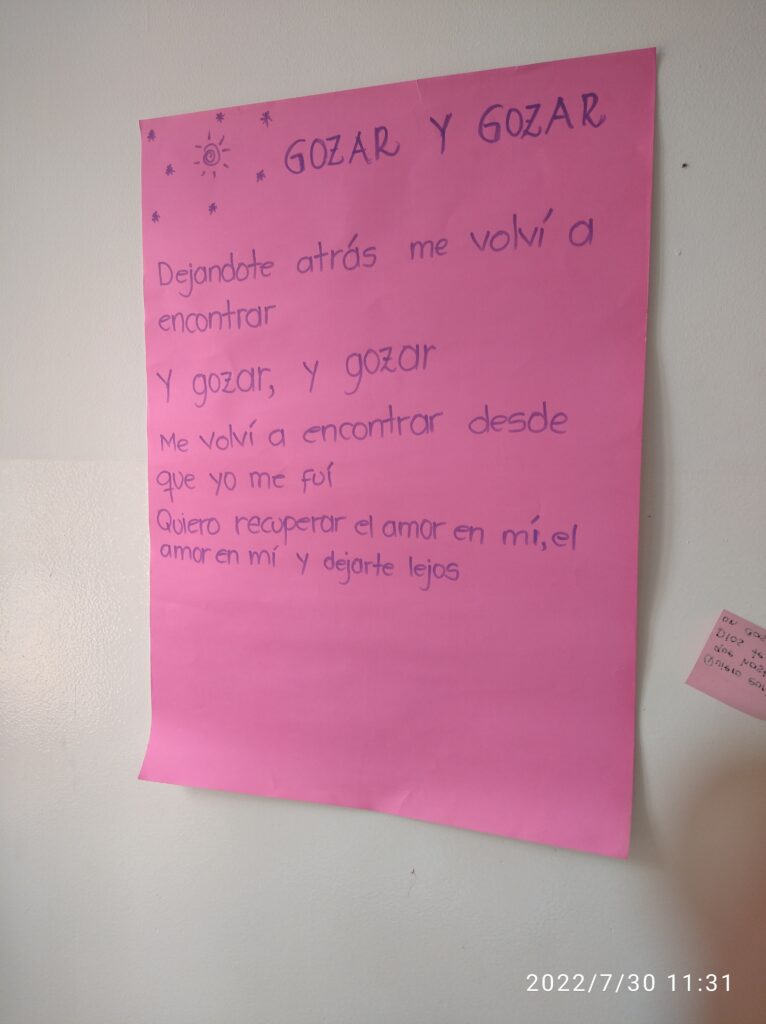 GOZAR Y GOZAR
Dejandote atrás me volví a
encontrar
Y gozar, y gozar
Me volví a encontrar desde
que yo me fuí
Quiero recuperar el amor en mí, el
amor en mí y dejarte lejos
DIOS te
2022/7/30 11:31